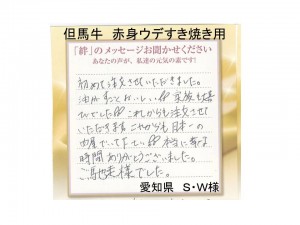 但馬牛　赤身ウデすき焼き用
『絆』のメッセージお聞かせください
あなたの声が、私達の元気の素です!
初めて注文させていただきました。
油がすっとおいしい 家族も大喜
びでした これからも注文させて
いただきます これからも日本一の
肉屋でいて下さい 本当に幸せな
時間ありがとうございました。
ご馳走様でした。
愛知県　S・W様